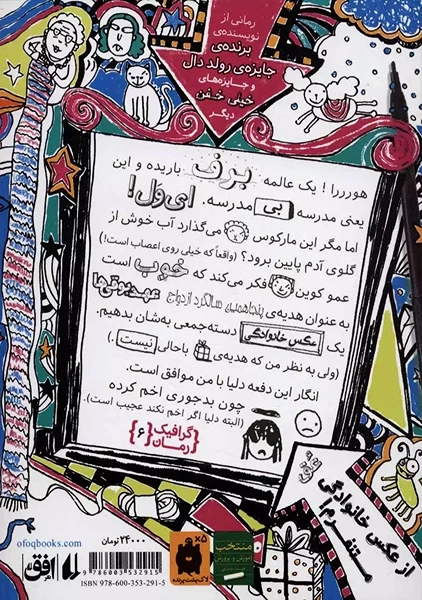 رمانی از
نویسنده‌ی
برنده‌ی
جایزه‌ی رولد دال
و جایزه‌های
خیلی خفن
دیگر
هورررا! یک عالمه برف باریده و این
یعنی مدرسه بی مدرسه. ای‌ول!
اما مگر این مارکوس می‌گذارد آب خوش از
گلوی آدم پایین برود؟ (واقعاً که خیلی روی اعصاب است!)
عمو کوین فکر می‌کند که خوب است
به عنوان هدیه‌ی پنجاهمین سالگرد ازدواج عهدبوقی‌ها
یک عکس خانوادگی دسته‌جمعی به‌شان بدهیم.
(ولی به نظر من که هدیه‌ی باحالی نیست.)
انگار این دفعه دلیا با من موافق است.
چون بدجوری اخم کرده
(البته دلیا اگر اخم نکند عجیب است).
گرافیک
رمان
{۶}
از عکس خانوادگی
متنفرم!
ofoqbooks.com
افق
۲۴۰۰۰ تومان
9 786003 532915
ISBN 978-600-353-291-5
×۵
لاک‌پشت پرنده
منتخب
آموزش و پرورش